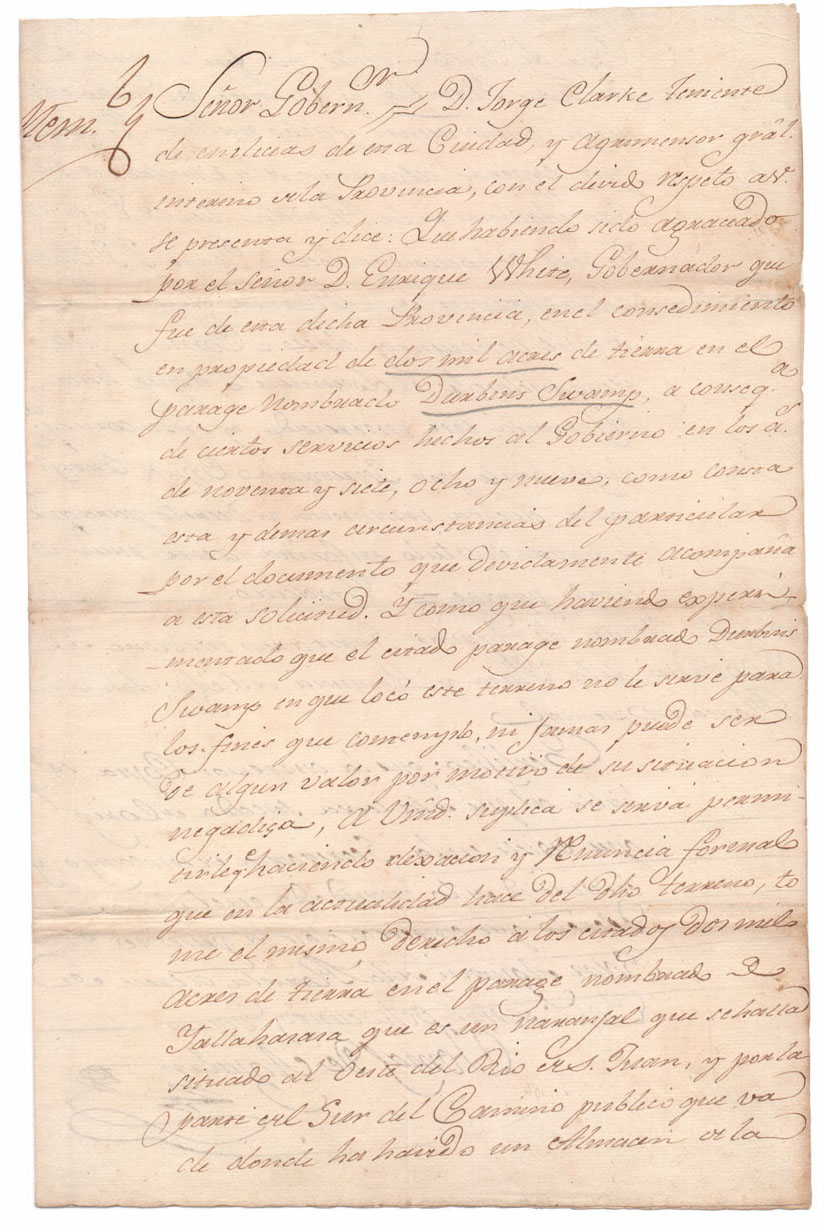 Mem.l
Señor Gobern.or D. Jorge Clarke Teniente
de milicias de esta Ciudad, y Agrimensor grâl.
interino de la Provincia, con el divido respeto a V.
se presenta y dice: Que habiendo sido agraciado
por el Señor D. Enrique White, Gobernador que
fue de esta dicha Provincia, en el consedimiento
en propiedad de dos mil acres de tierra en el
parage nombrado Durbins Swamp, a conseq.a
de ciertos servicios hechos al Gobierno en los a.s
de noventa y siete, ocho y nueve, como consta
esta y demas circunstancias del particular
por el documento que devidamente acompaña
a esta solicitud. Y como que haviendo experi-
-mentado que el citado parage nombrado Durbins
Swamp en que locó este terreno no le sirve para
los fines que contempló, ni jamas puede ser
de algun valor por motivo de su situacion
negadiza, A Vmd. suplica se sirva permi-
tirle, haciendo dexacion y renuncia formal
que en la actualidad hace del dho terreno, to
me el mismo derecho a los citados dos mil
acres de tierra en el parage nombrado
Tallahasasa que es un naranjal que se halla
situado al Oeste del Rio de S. Juan, y por la
parte del Sur del Camino publico que va
de donde ha havido un Almacen de la